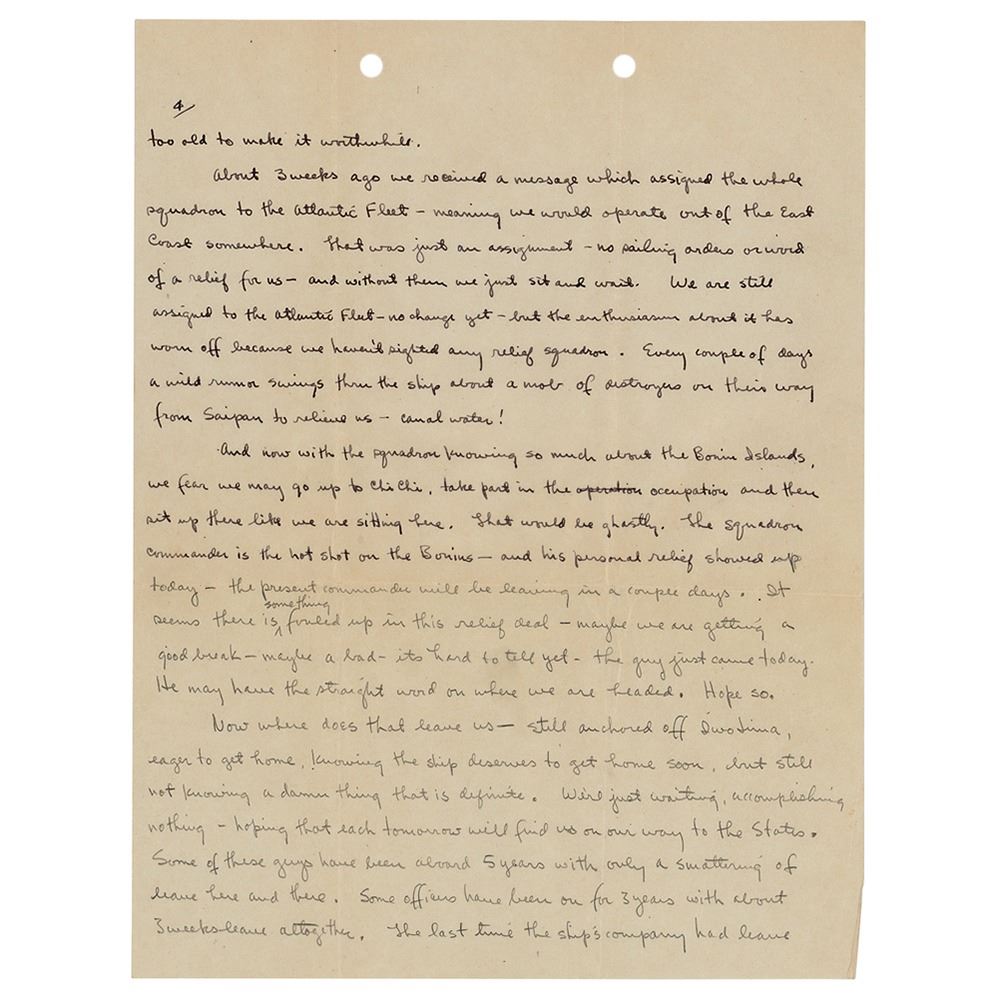 4/
too old to make it worthwhile.
About 3 weeks ago we received a message which assigned the whole
squadron to the Atlantic Fleet – meaning we would operate out of the East
Coast somewhere. That was just an assignment – no sailing orders or word
of a relief for us – and without them we just sit and wait. We are still
assigned to the Atlantic Fleet – no change yet – but the enthusiasm about it has
worn off because we haven't sighted any relief squadron. Every couple of days
a wild rumor swings thru the ship about a mob of destroyers on their way
from Saipan to relieve us – canal water!
And now with the squadron knowing so much about the Bonin Islands,
we fear we may go up to Chi Chi, take part in the operation occupation and then
sit up there like we are sitting here. That would be ghastly. The squadron
commander is the hot shot on the Bonins – and his personal relief showed up
today – the present commander will be leaving in a couple days. It
something
seems there is fouled up in this relief deal – maybe we are getting a
good break – maybe a bad – its hard to tell yet – the guy just came today.
He may have the straight word on where we are headed. Hope so.
Now where does that leave us – still anchored off Iwo Jima,
eager to get home, knowing the ship deserves to get home soon, but still
not knowing a damn thing that is definite. We're just waiting, accomplishing
nothing – hoping that each tomorrow will find us on our way to the States.
Some of these guys have been aboard 5 years with only a smattering of
leave here and there. Some officers have been on for 3 years with about
3 weeks leave altogether. The last time the ship's company had leave